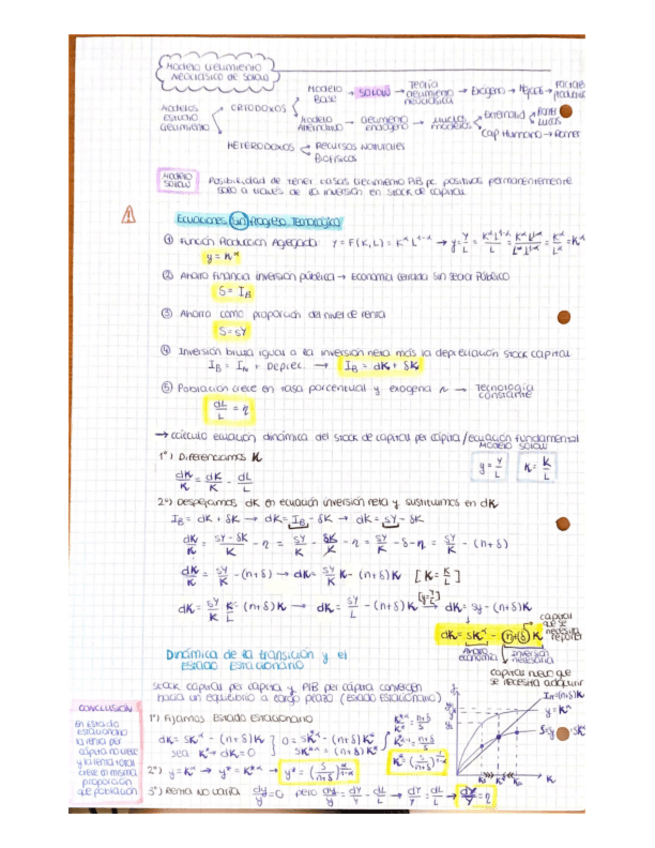 Modelo Crecimiento
Neoclásico de Solow
Modelos Estudio Crecimiento
ORTODOXOS
Modelo Base → SOLOW → Teoría crecimiento neoclásica → Exógeno →
Modelo Alternativo → Crecimiento endógeno → Nuevos modelos
Externalid
Romer
Lucas
Cap Humano → Romer
HETERODOXOS
Recursos Naturales
Biofísicos
MODELO SOLOW
Posibilidad de tener tasas crecimiento PIB pc positivas permanentemente
solo a través de la inversión en stock de capital
Ecuaciones (sin) Progreso Tecnológico
① Función Producción Agregada Y = F(K,L) = K^α L^1-α → y = Y/L = K^α L^1-α/L = K^α L^1-α/L^α L^1-α = K^α/L^α = K^α
y = K^α
② Ahorro financia inversión pública → Economía cerrada sin sector público
S = I_B
③ Ahorro como proporción del nivel de renta
S = sY
④ Inversión bruta igual a la inversión neta más la depreciación stock capital
I_B = I_N + Deprec. → I_B = dK + δK
⑤ Población crece en tasa porcentual y exógena n → Tecnología constante
dL/L = n
→ Cálculo ecuación dinámica del stock de capital per cápita / ecuación fundamental
MODELO SOLOW
1º) Diferenciamos K
y = Y/L
K = K/L
dK/K = dK/K - dL/L
2º) Despejamos dK en ecuación inversión neta y sustituimos en dK
I_B = dK + δK → dK = I_B - δK → dK = sY - δK
dK/K = sY - δK/K - n = sY/K - δK/K - n = sY/K - δ - n = sY/K - (n+δ)
dK/K = sY/K - (n+δ) → dK = sY/K K - (n+δ) K [K = K/L]
dK = sY/K K/L - (n+δ) K → dK = sY/L - (n+δ) K [y=Y/L] → dK = sy - (n+δ) K
dK = sK^α - (n+δ) K
capital que se necesita reponer
Ahorro economía
Inversión necesaria
capital nuevo que se necesita adquirir
Dinámica de la transición y el
estado estacionario
Stock capital per cápita y PIB per cápita convergen
hacia un equilibrio a largo plazo (estado estacionario)
CONCLUSIÓN
En estado
estacionario
la renta per
cápita no crece
y la renta total
crece en misma
proporción
que población
1º) Fijamos Estado Estacionario
dK = sK^α - (n+δ) K
sea K^* → dK = 0
0 = sK^*α - (n+δ) K^*
sK^*α = (n+δ) K^*
K^* = (s/n+δ)^1/1-α
2º) y = K^α → y^* = K^*α → y^* = (s/n+δ)^α/1-α
3º) Renta no varía dy/y = 0 pero dy/y = dY/Y - dL/L → dY/Y = dL/L → dY/Y = n
y = K^α